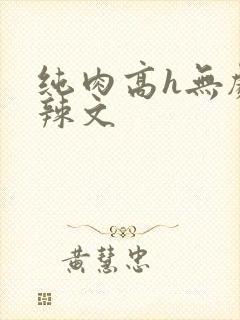 纯肉高h無
辣文
黄慧忠